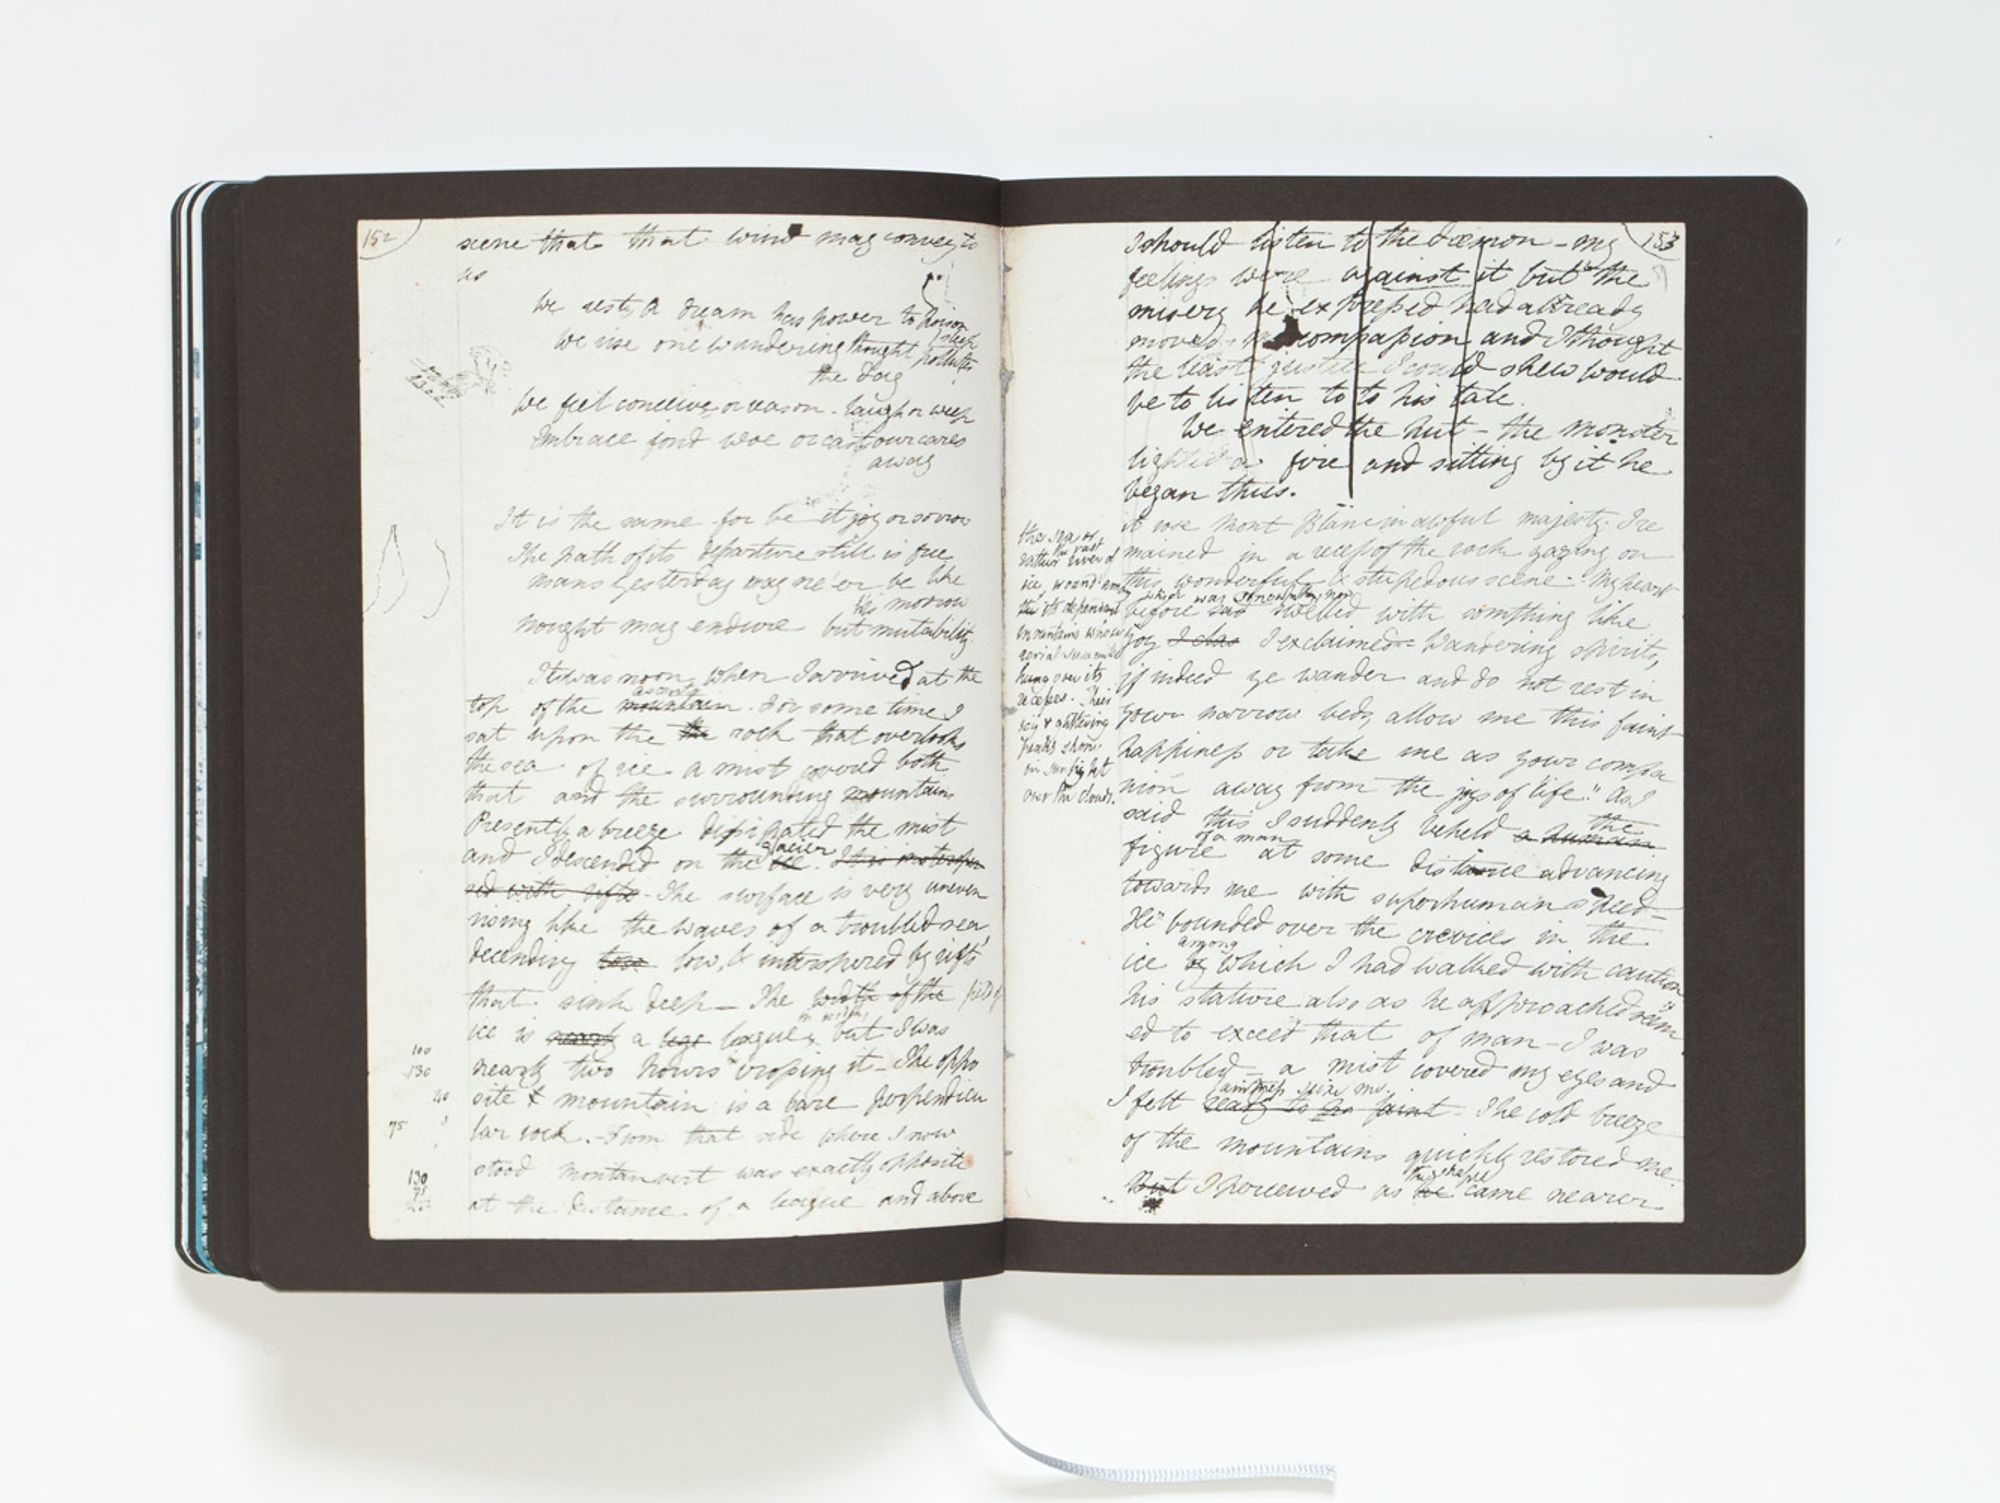 152
scene that that wind may convey to
us
We rest, A dream has power to poison
sleep
We rise one wandering thought pollutes
the day
We feel conceive or reason. laugh or weep
Embrace fond woe or cast our cares
away
It is the same for be it joy or sorrow
The path of its departure still is free
mans yesterday may ne'er be like
his morrow
Nought may endure but mutability
It was noon when I arrived at the
ascent
top of the mountain. For some time I
sat upon the the rock that overlooks
the sea of ice a mist covered both
that and the surrounding mountains
Presently a breeze dissipated the mist
glacier
and I descended on the ice. It is interspersed
with rifts - The surface is very uneven
rising like the waves of a troubled sea,
decending low, & interspersed by rifts
that sink deep - The width of the field of
in width,
ice is nearly a lege league, but I was
100
nearly two hours crossing it - The oppo
130
site mountain is a bare perpendicu
40
lar rock. - From that side where I now
75
stood montanvert was exactly opposite
130
75
at the distance of a league and above
153
I should listen to the dæmon - my
feelings were against it but the
misery he expressed had already
moved compassion and I thought
the least justice I could shew would
be to listen to to his tale.
We entered the hut - the monster
lighted a fire and sitting by it he
began thus.
it rose Mont Blanc in awful majesty. I re
mained in a recess of the rock gazing on
this wonderful & stupedous scene - My heart
which was now
before sad swelled with somthing like
joy I exclaimed - Wandering spirits,
if indeed ye wander and do not rest in
your narrow beds allow me this faint
happiness or take me as your compa
nion away from the joys of life." As I
the
said this I suddenly beheld a human
of a man
figure at some distance advancing
towards me with superhuman speed -
He bounded over the crevices in the
among
ice by which I had walked with caution
his stature also as he approached seem
ed to exceed that of man - I was
troubled - a mist covered my eyes and
faintness seize me.
I felt ready to faint - The cold breeze
of the mountains quickly restored me.
the shape
But I perceived as he came nearer
the sea or
the vast
rather river of
ice, wound among
the its dependant
mountains whose
aerial summits
hung over its
recesses. Their
icy & glittering
peaks shone
in sunlight
over the clouds.